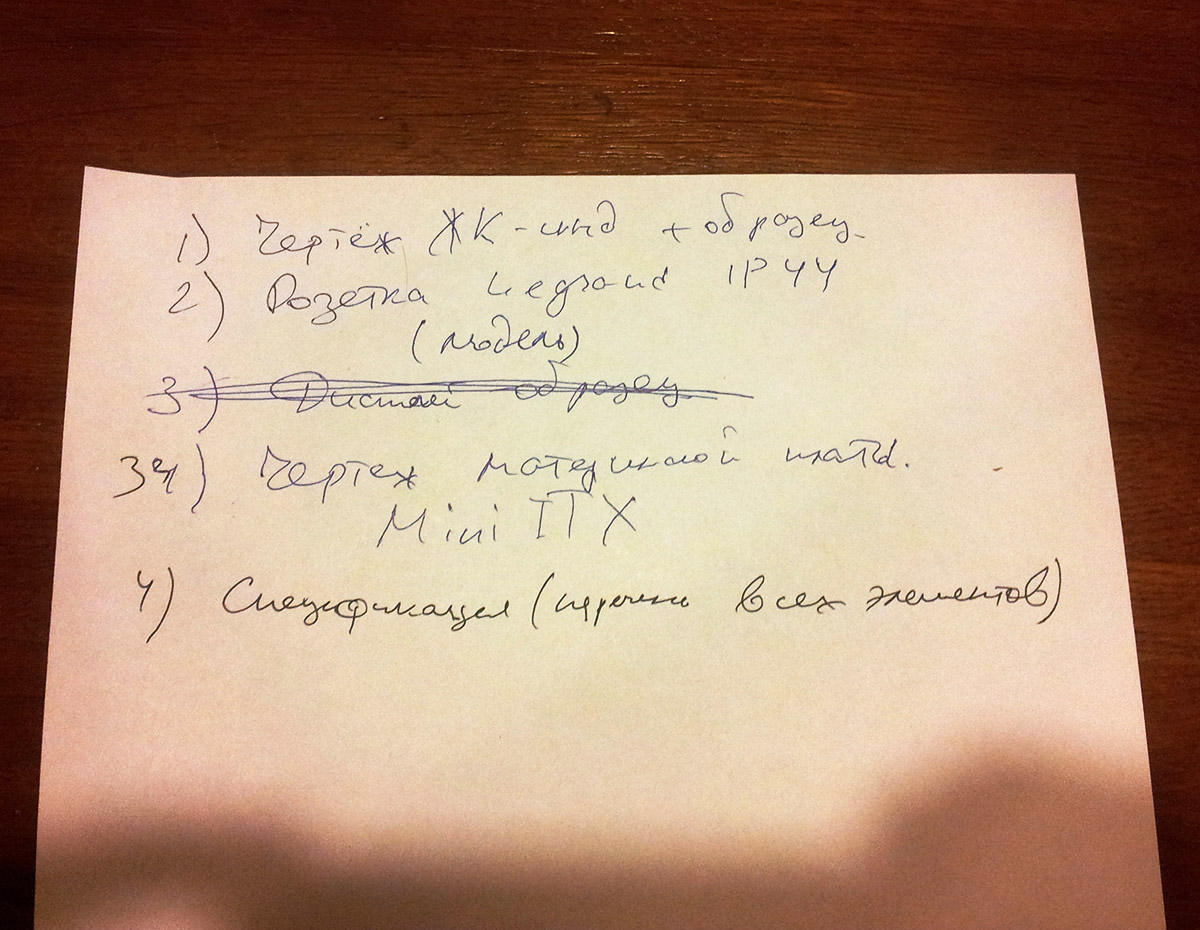 1) Чертёж ЖК-инд + образец
2) Розетка Legrand IP44
(модель)
3) образец
34) Чертеж материнской платы.
Mini ITX
4) Спецификация (перечень всех элементов)